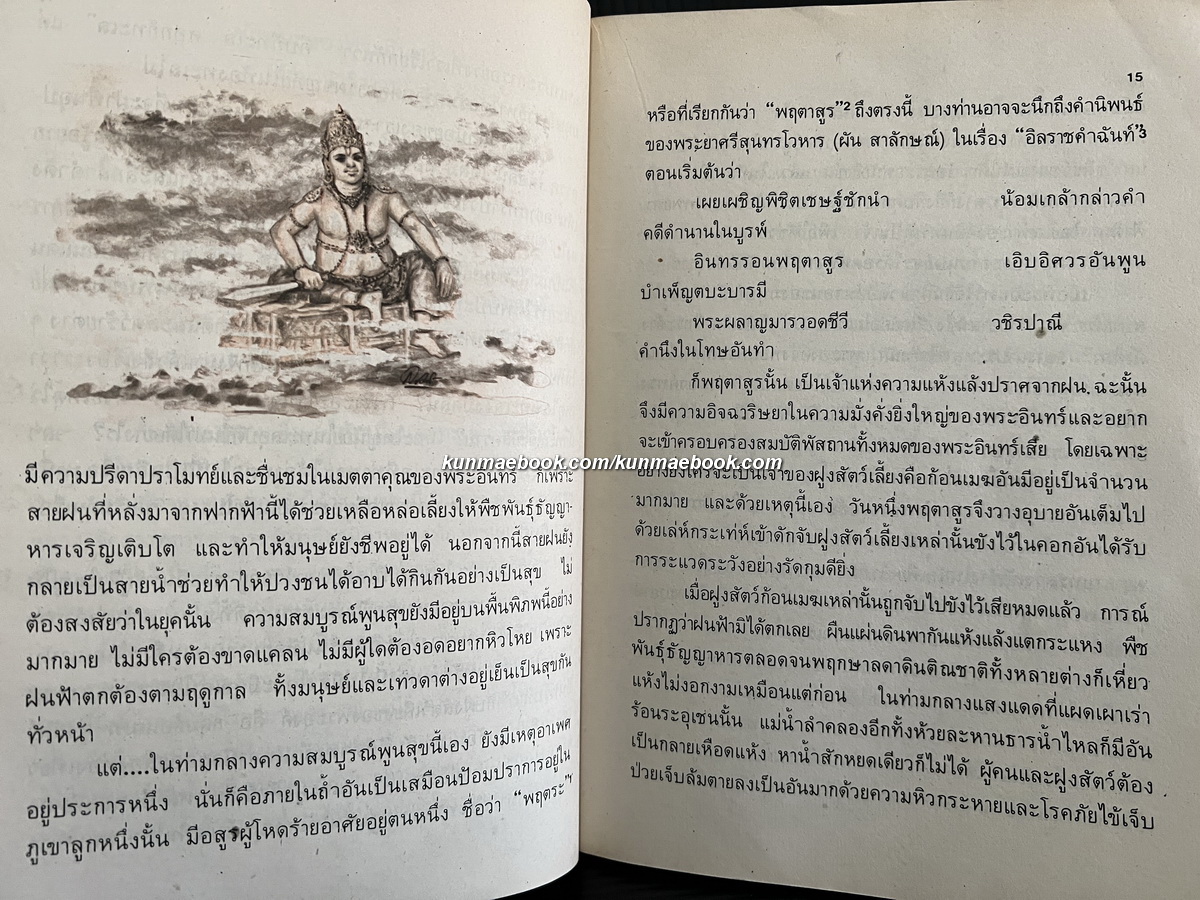 มีความปรีดาปราโมทย์และชื่นชมในเมตตาคุณของพระอินทร์ ก็เพราะ
สายฝนที่หลั่งมาจากฟากฟ้านี้ได้ช่วยเหลือหล่อเลี้ยงให้พืชพันธุ์ธัญญา-
หารเจริญเติบโต และทำให้มนุษย์ยังชีพอยู่ได้ นอกจากนี้สายฝนยัง
กลายเป็นสายน้ำช่วยทำให้ปวงชนได้อาบได้กินกันอย่างเป็นสุข ไม่
ต้องสงสัยว่าในยุคนั้น ความสมบูรณ์พูนสุขยังมีอยู่บนพื้นพิภพนี้อย่าง
มากมาย ไม่มีใครต้องขาดแคลน ไม่มีผู้ใดต้องอดอยากหิวโหย เพราะ
ฝนฟ้าตกต้องตามฤดูกาล ทั้งมนุษย์และเทวดาต่างอยู่เย็นเป็นสุขกัน
ทั่วหน้า
แต่....ในท่ามกลางความสมบูรณ์พูนสุขนี้เอง ยังมีเหตุอาเพศ
อยู่ประการหนึ่ง นั่นก็คือภายในถ้ำอันเป็นเสมือนป้อมปราการอยู่ใน
ภูเขาลูกหนึ่งนั้น มีอสูรผู้โหดร้ายอาศัยอยู่ตนหนึ่ง ชื่อว่า “พฤตระ”¹
kunmaebook.com/kunmaebook.com
15
หรือที่เรียกกันว่า “พฤตาสูร”² ถึงตรงนี้ บางท่านอาจจะนึกถึงคำนิพนธ์
ของพระยาศรีสุนทรโวหาร (ผัน สาลักษณ์) ในเรื่อง “อิลราชคำฉันท์”³
ตอนเริ่มต้นว่า
เผยเผชิญพิชิตเชษฐ์ชักนำ น้อมเกล้ากล่าวคำ
คดีดำนานในบูรพ์
อินทรรอนพฤตาสูร เอิบอิศวรอันพูน
บำเพ็ญตบะบารมี
พระผลาญมารวอดชีวี วชิรปาณี
คำนึงในโทษอันทำ
ก็พฤตาสูรนั้น เป็นเจ้าแห่งความแห้งแล้งปราศจากฝน. ฉะนั้น
จึงมีความอิจฉาริษยาในความมั่งคั่งยิ่งใหญ่ของพระอินทร์และอยาก
จะเข้าครอบครองสมบัติพัสถานทั้งหมดของพระอินทร์เสีย โดยเฉพาะ
อย่างยิ่งใคร่จะเป็นเจ้าของฝูงสัตว์เลี้ยงคือก้อนเมฆอันมีอยู่เป็นจำนวน
มากมาย และด้วยเหตุนี้เอง วันหนึ่งพฤตาสูรจึงวางอุบายอันเต็มไป
ด้วยเล่ห์กระเท่ห์เข้าดักจับฝูงสัตว์เลี้ยงเหล่านั้นขังไว้ในคอกอันได้รับ
การระแวดระวังอย่างรัดกุมดียิ่ง
เมื่อฝูงสัตว์ก้อนเมฆเหล่านั้นถูกจับไปขังไว้เสียหมดแล้ว การณ์
ปรากฏว่าฝนฟ้ามิได้ตกเลย ผืนแผ่นดินพากันแห้งแล้งแตกระแหง พืช
พันธุ์ธัญญาหารตลอดจนพฤกษาลดาดินติณชาติทั้งหลายต่างก็เหี่ยว
แห้งไม่งอกงามเหมือนแต่ก่อน ในท่ามกลางแสงแดดที่แผดเผาเร่า
ร้อนระอุเช่นนั้น แม่น้ำลำคลองอีกทั้งห้วยละหานธารน้ำไหลก็มีอัน
เป็นกลายเหือดแห้ง หาน้ำสักหยดเดียวก็ไม่ได้ ผู้คนและฝูงสัตว์ต้อง
ป่วยเจ็บล้มตายลงเป็นอันมากด้วยความหิวกระหายและโรคภัยไข้เจ็บ